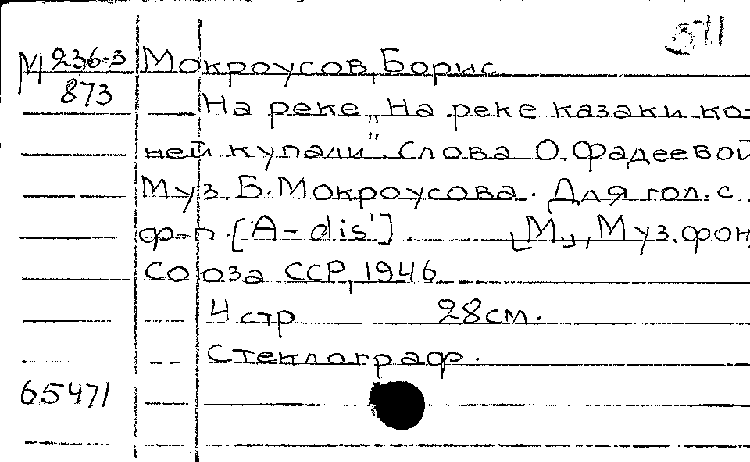 М 236-3 Мокроусов, Борис
873 На реке „На реке казаки ко-
ней купали". Слова О. Фадеевой
Муз Б. Мокроусова. Для гол. с
ф-п. [A-dis']. [М.], Муз. фонд
Союза ССР, 1946
4 стр 28см.
Стеклограф.
65471